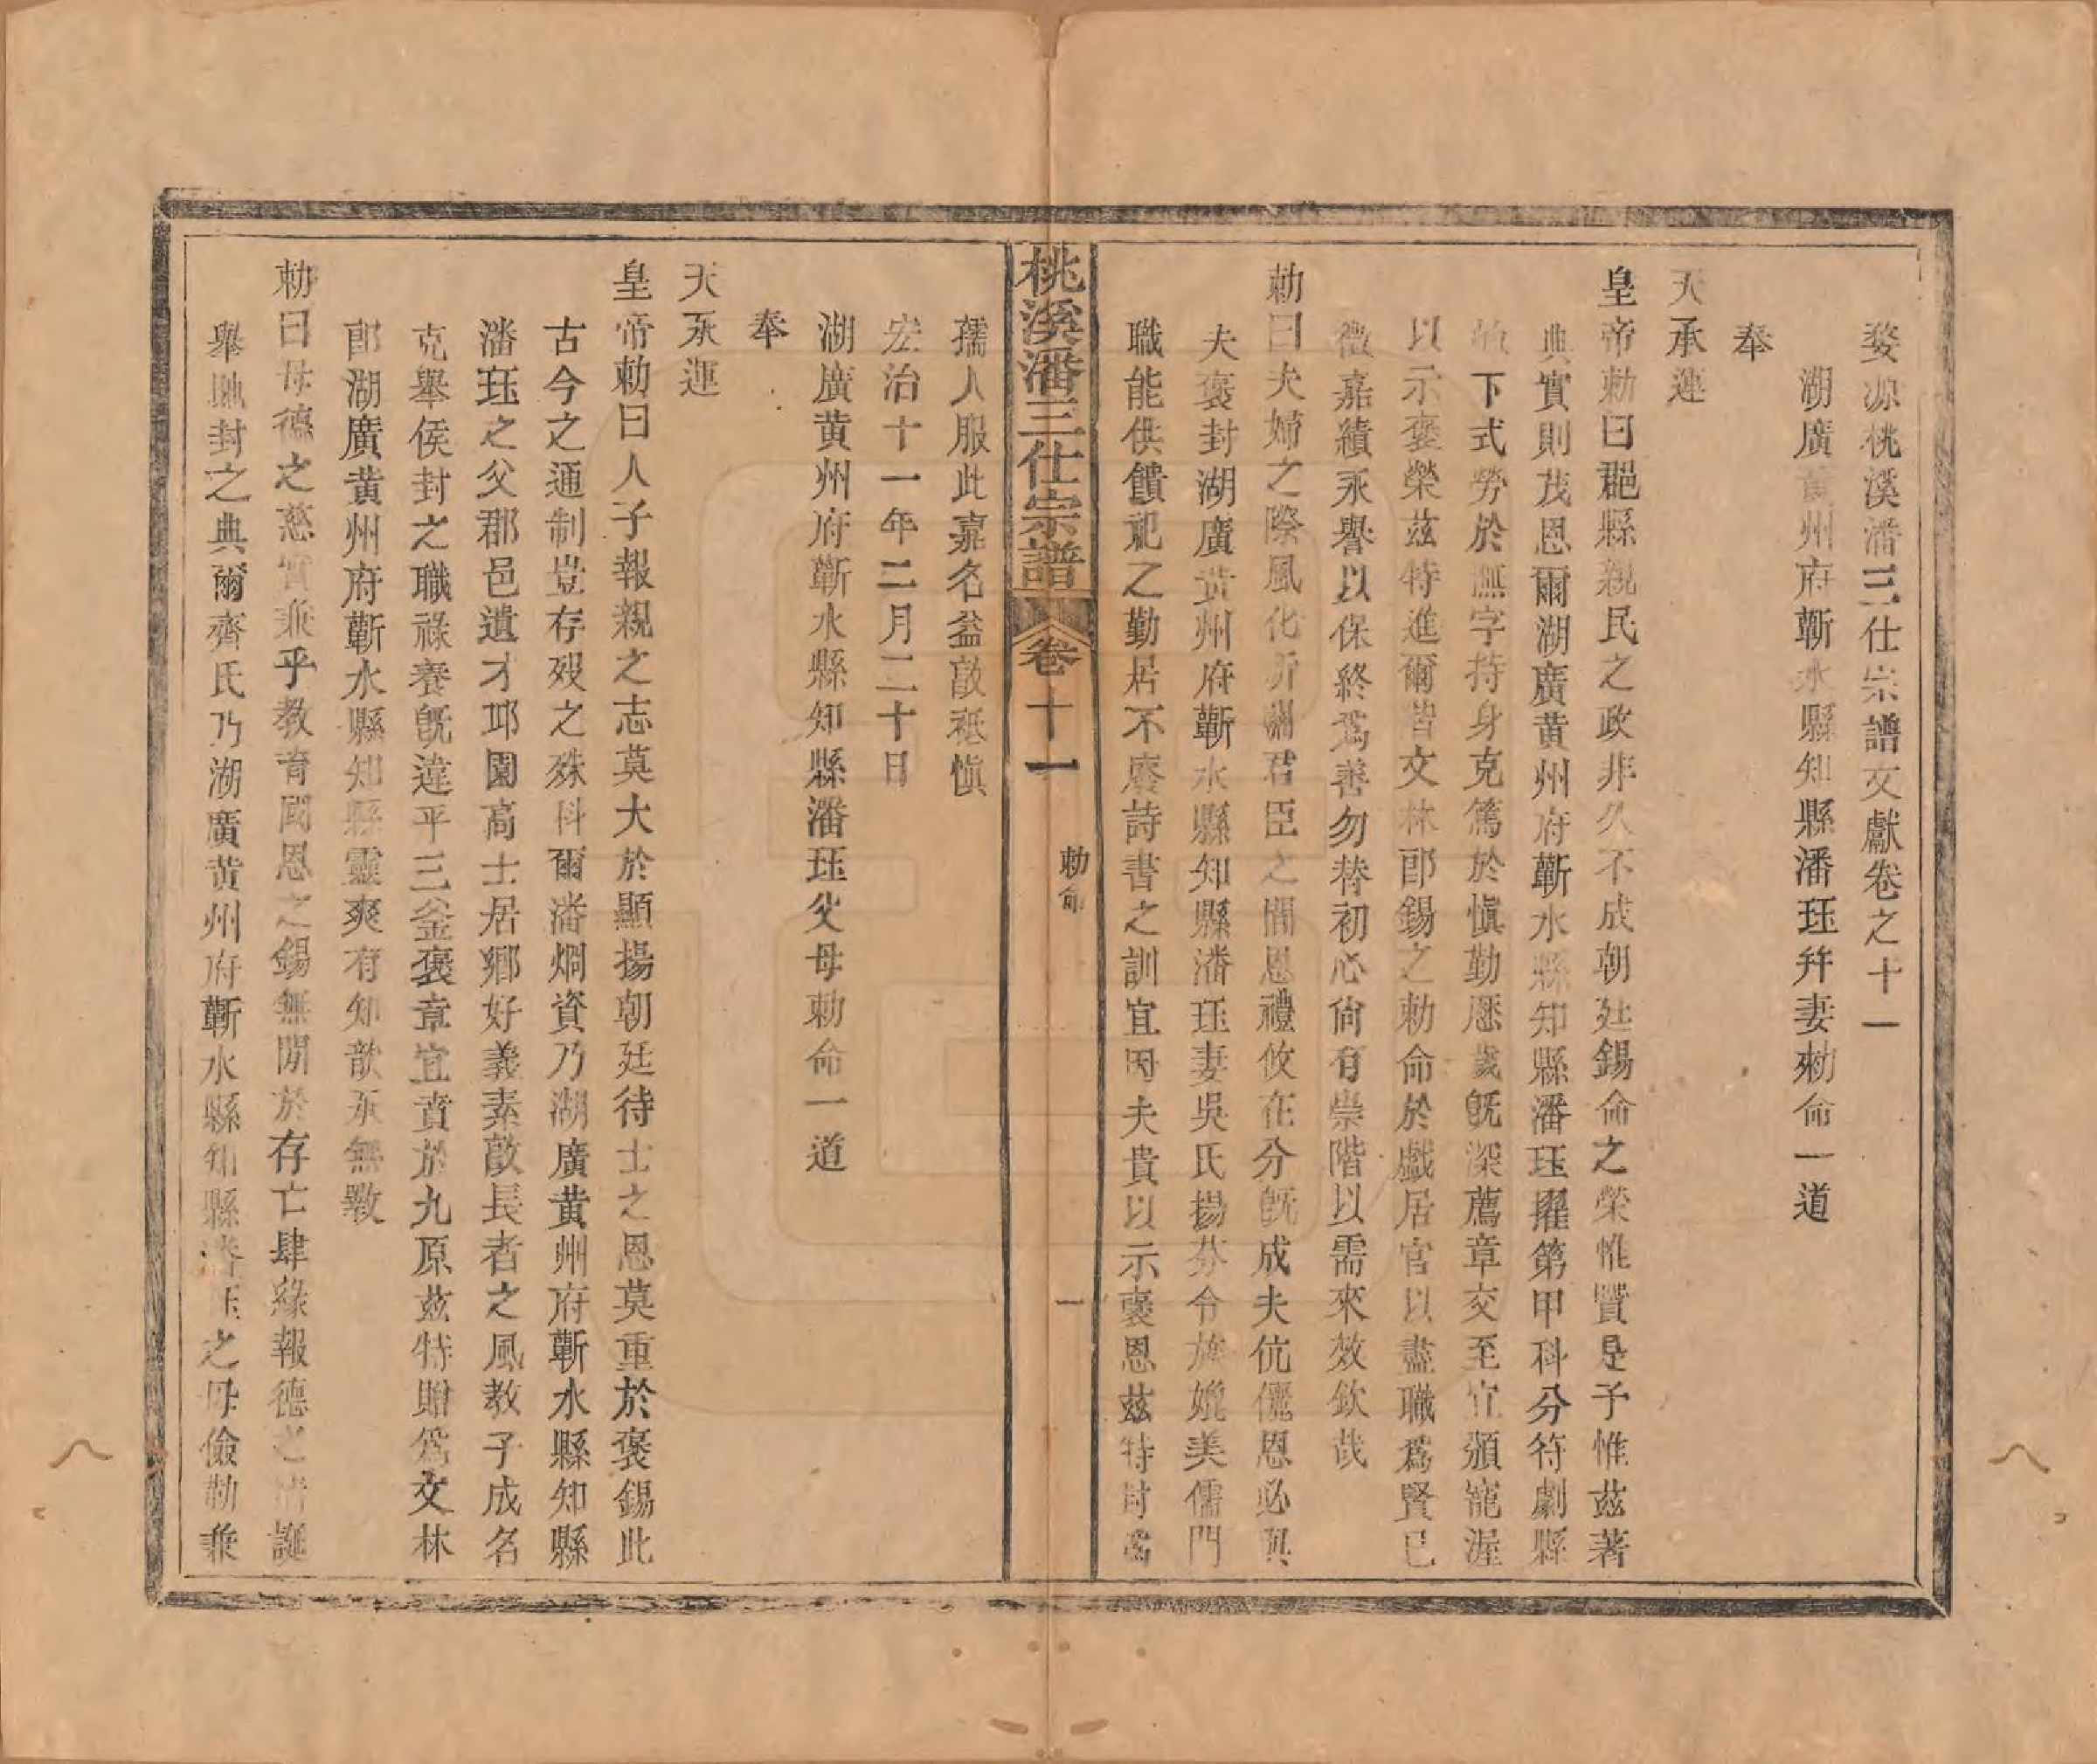 婺源桃溪潘三仕宗譜文獻卷之十一
湖廣黄州府蘄水縣知縣潘珏幷妻勅命一道
奉
天承運
皇帝勅曰郡縣親民之政非久不成朝廷錫命之榮惟賢是予惟茲著
典實則茂恩爾湖廣黄州府蘄水縣知縣潘珏擢第甲科分符劇縣
下式勞於撫字持身克篤於愼勤歷歲旣深薦章交至宜頒寵渥
以示褒榮茲特進爾階文林郎錫之勅命於戲居官以盡職爲賢已
徵嘉績永譽以保終爲善勿替初心尙有崇階以需來效欽哉
勅曰夫婦之際風化所關君臣之間恩禮攸在分旣成夫伉儷恩必與
夫褒封湖廣黄州府蘄水縣知縣潘珏妻吳氏揚芬令族娩美儒門
職能供饋祀之勤居不廢詩書之訓宜因夫貴以示褒恩茲特封爲
孺人服此嘉名益敬祗愼
宏治十一年二月二十日
湖廣黄州府蘄水縣知縣潘珏父母勅命一道
奉
天承運
皇帝勅曰人子報親之志莫大於顯揚朝廷待士之恩莫重於褒錫此
古今之通制豈存歿之殊科爾潘烱資乃湖廣黄州府蘄水縣知縣
潘珏之父郡邑遺才邱園高士居鄉好義素敬長者之風教子成名
克舉侯封之職祿養旣違乎三釜褒章宜賁於九原茲特贈爲文林
郎湖廣黄州府蘄水縣知縣靈爽有知歆承無斁
勅曰母德之慈實兼乎教育國恩之錫無閒於存亡肆緣報德之情誕
舉貤封之典爾齊氏乃湖廣黄州府蘄水縣知縣潘珏之母儉勤兼
桃溪潘三仕宗譜
卷十一
勅命
一